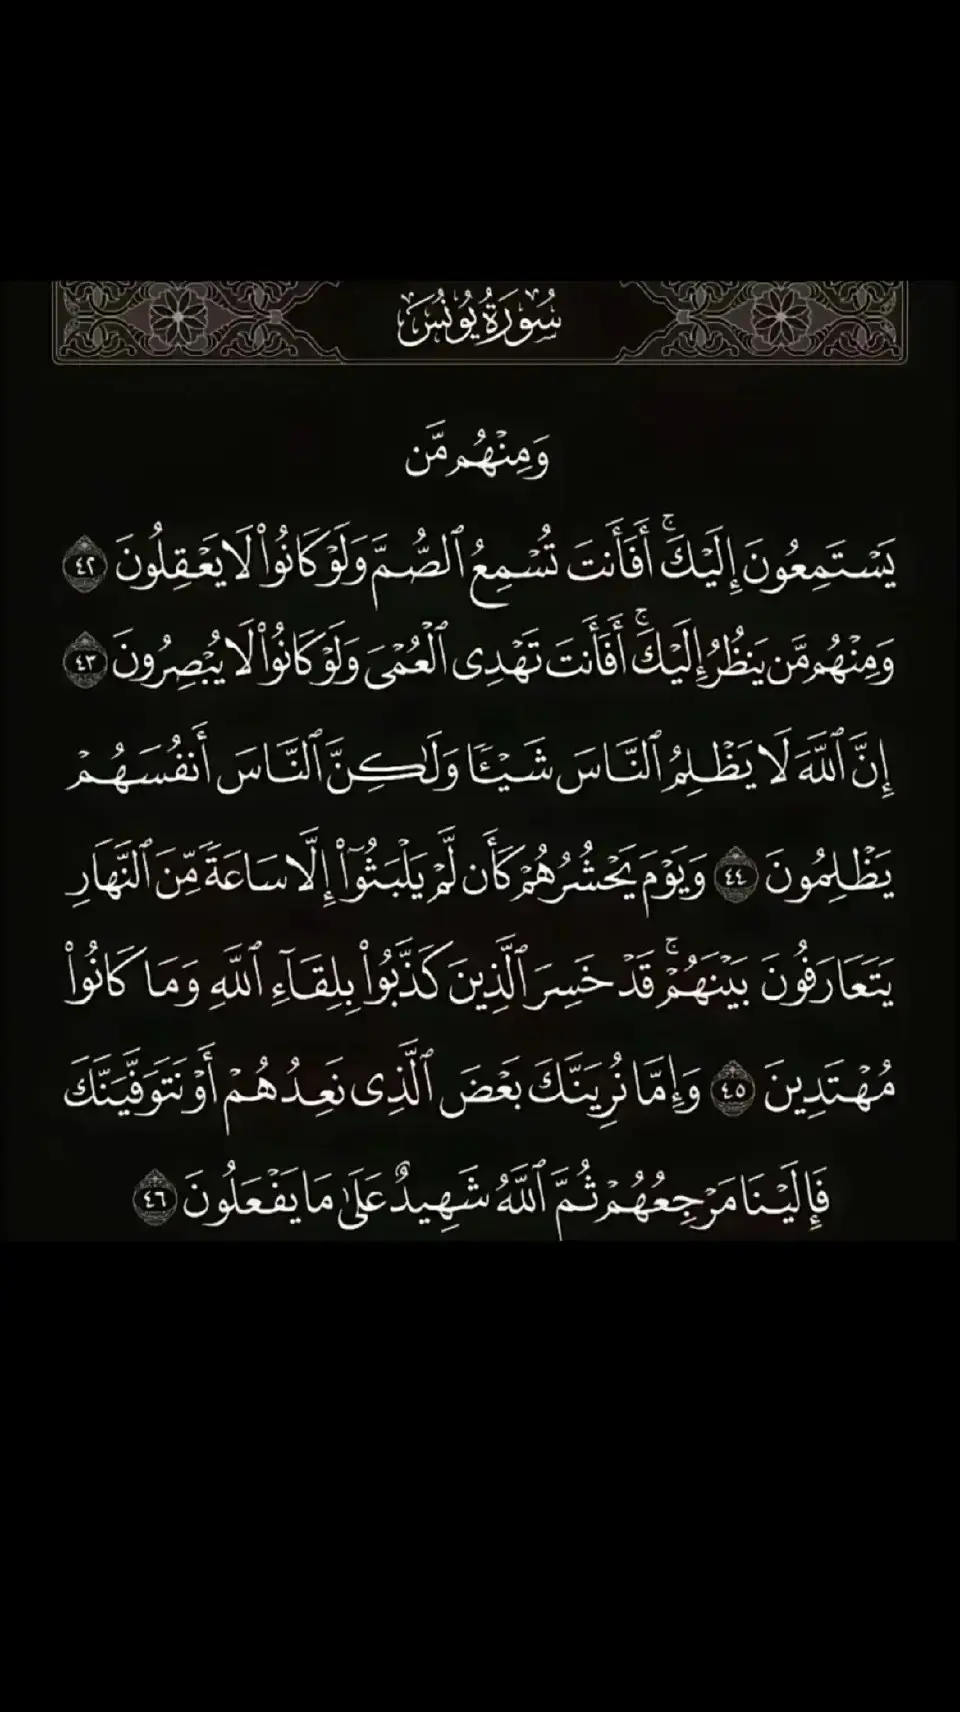 سُورَةُ يُونُسَ
وَمِنْهُم مَّن
يَسْتَمِعُونَ إِلَيْكَ ۚ أَفَأَنتَ تُسْمِعُ ٱلصُّمَّ وَلَوْ كَانُوا۟ لَا يَعْقِلُونَ ٤٢
وَمِنْهُم مَّن يَنظُرُ إِلَيْكَ ۚ أَفَأَنتَ تَهْدِى ٱلْعُمْىَ وَلَوْ كَانُوا۟ لَا يُبْصِرُونَ ٤٣
إِنَّ ٱللَّهَ لَا يَظْلِمُ ٱلنَّاسَ شَيْـًٔا وَلَـٰكِنَّ ٱلنَّاسَ أَنفُسَهُمْ
يَظْلِمُونَ ٤٤ وَيَوْمَ يَحْشُرُهُمْ كَأَن لَّمْ يَلْبَثُوٓا۟ إِلَّا سَاعَةً مِّنَ ٱلنَّهَارِ
يَتَعَارَفُونَ بَيْنَهُمْ ۚ قَدْ خَسِرَ ٱلَّذِينَ كَذَّبُوا۟ بِلِقَآءِ ٱللَّهِ وَمَا كَانُوا۟
مُهْتَدِينَ ٤٥ وَإِمَّا نُرِيَنَّكَ بَعْضَ ٱلَّذِى نَعِدُهُمْ أَوْ نَتَوَفَّيَنَّكَ
فَإِلَيْنَا مَرْجِعُهُمْ ثُمَّ ٱللَّهُ شَهِيدٌ عَلَىٰ مَا يَفْعَلُونَ ٤٦